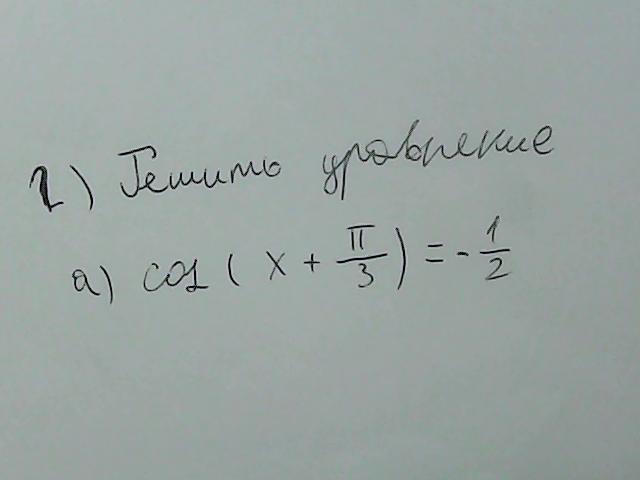 1) Решить уравнение
a) cos ( x + π/3 ) = - 1/2